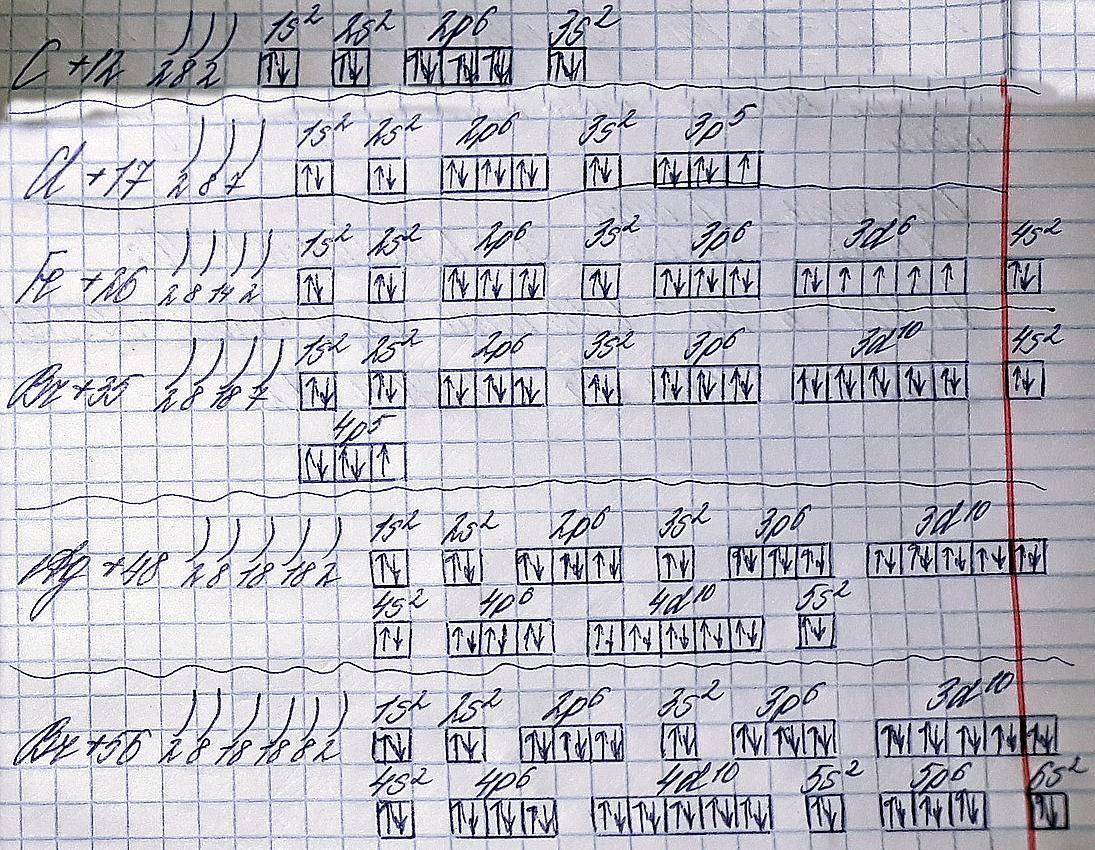 C +12 2 8 2 1s² 2s² 2p⁶ 3s²
Cl +17 2 8 7 1s² 2s² 2p⁶ 3s² 3p⁵
Fe +26 2 8 14 2 1s² 2s² 2p⁶ 3s² 3p⁶ 3d⁶ 4s²
Br +35 2 8 18 7 1s² 2s² 2p⁶ 3s² 3p⁶ 3d¹⁰ 4s²
4p⁵
Ag +48 2 8 18 18 2 1s² 2s² 2p⁶ 3s² 3p⁶ 3d¹⁰
4s² 4p⁶ 4d¹⁰ 5s²
+56 2 8 18 18 8 2 1s² 2s² 2p⁶ 3s² 3p⁶ 3d¹⁰
4s² 4p⁶ 4d¹⁰ 5s² 5p⁶ 6s²